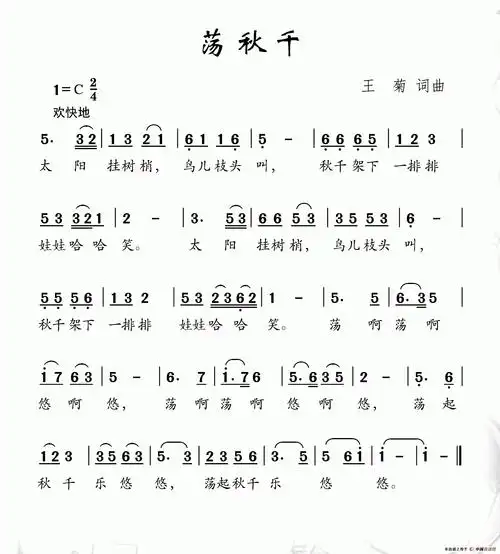 荡秋千
1=C 2/4
王 菊 词曲
欢快地
5. 32 | 13 21 | 61 16 | 5 - | 66 65 | 12 2 |
太 阳 挂树梢, 鸟儿枝头 叫, 秋千架下 一排排
53 321 | 2 - | 3. 53 | 66 53 | 35 53 | 6 - |
娃娃哈哈 笑。 太 阳 挂树梢, 鸟儿枝头 叫,
55 56 | 11 2 | 53 2362 | 1 - | 5. 5 | 6. 35 |
秋千架下 一排排 娃娃哈哈 笑。 荡 啊荡 啊
17 63 | 5 - | 6. 7 | 1.7 6 | 5.6 35 | 2 - | 5. 6 |
悠 啊 悠, 荡 啊荡 啊 悠 啊 悠, 荡 起
123 | 35 63 | 5 - | 35 63 | 5 - | 5 61 | 1 - ‖
秋 千 乐 悠 悠, 荡起秋千 乐 悠 悠。